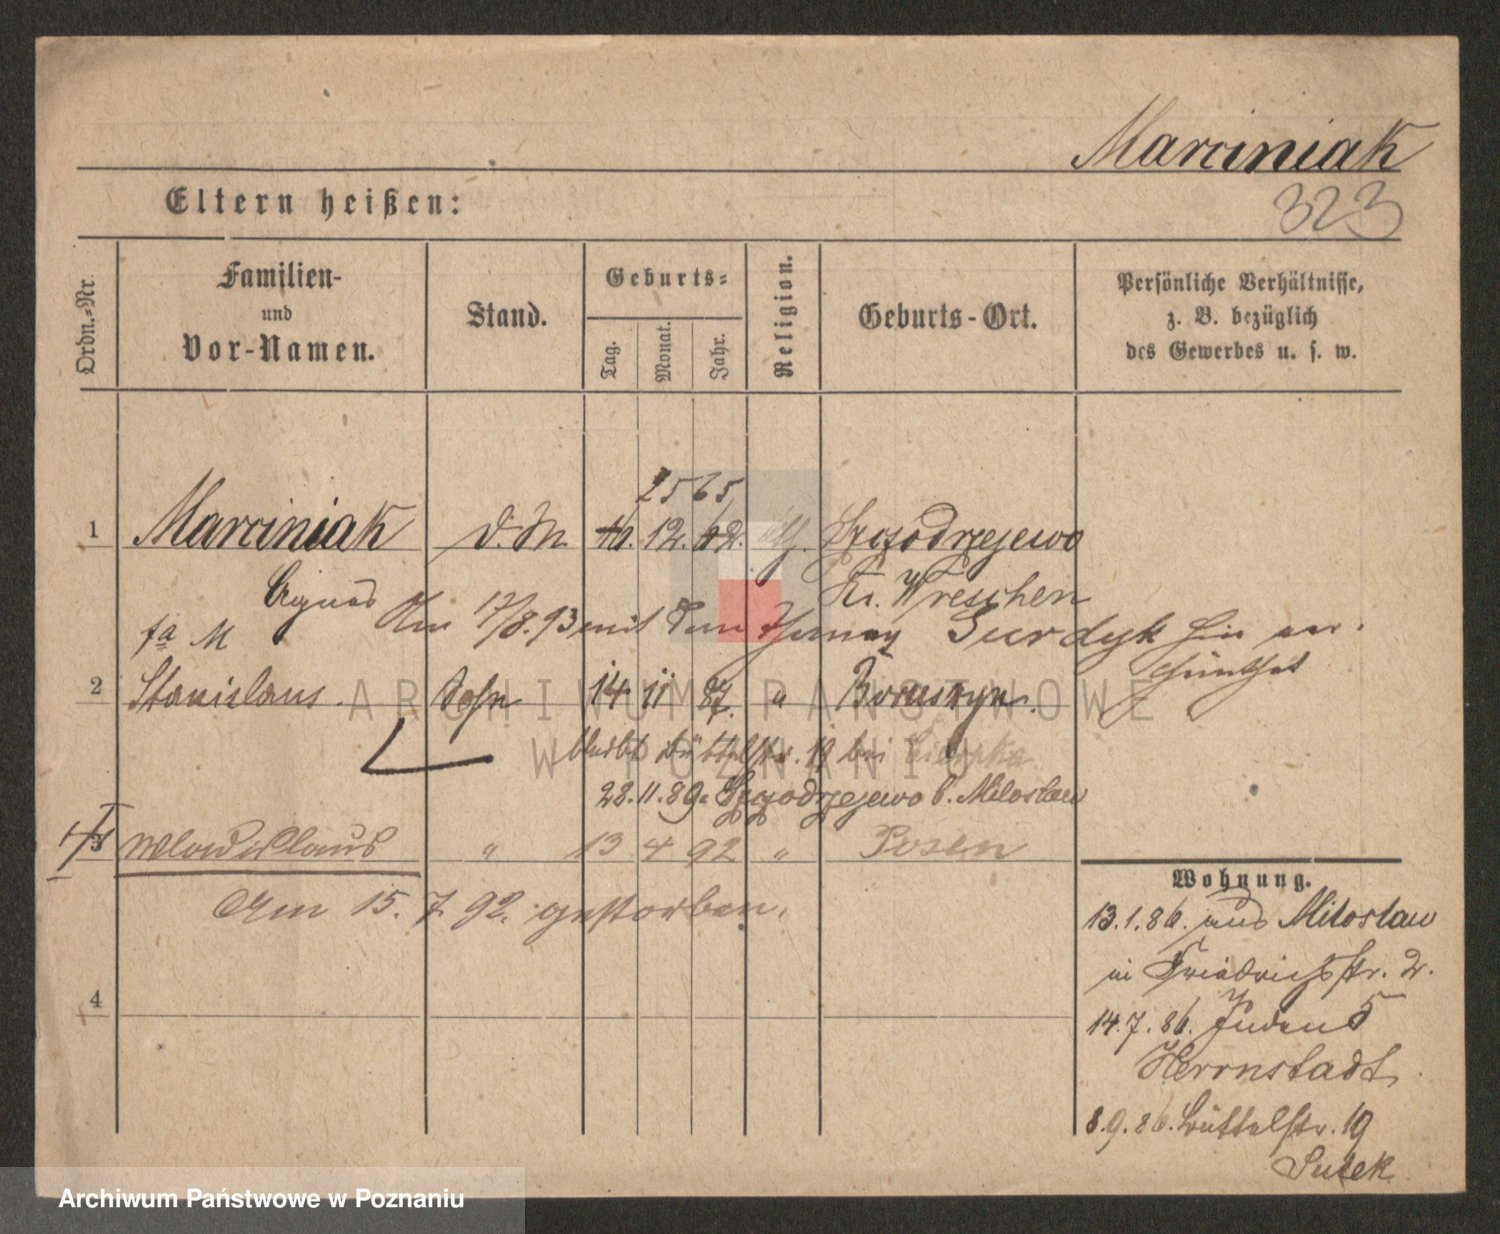 Marciniak
323
Eltern heißen:
Ordn.-Nr.
Familien-
und
Vor-Namen.
Stand.
Geburts-
Tag.
Monat.
Jahr.
Religion.
Geburts-Ort.
Persönliche Verhältnisse,
z. B. bezüglich
des Gewerbes u. s. w.
25 65
1 Marciniak d. M. 16. 12. 62.
Kr. Wreschen
Agnes
17/8.93 mit dem Gurdyk
2 Stanislaus. Sohn 14 11 87. "
Büttelstr. 19 bei
28.11.89 b. Miloslaw
3 Wladislaus " 13 4 92 " Posen
Am 15. 7. 92. gestorben.
4
Wohnung.
13.1.86. aus Miloslaw
in Friedrichstr. 2.
14.7.86. Juden 5
Herrnstadt
8.9.86. Büttelstr. 19
Sulek
ARCHIWUM PAŃSTWOWE
W POZNANIU
Archiwum Państwowe w Poznaniu